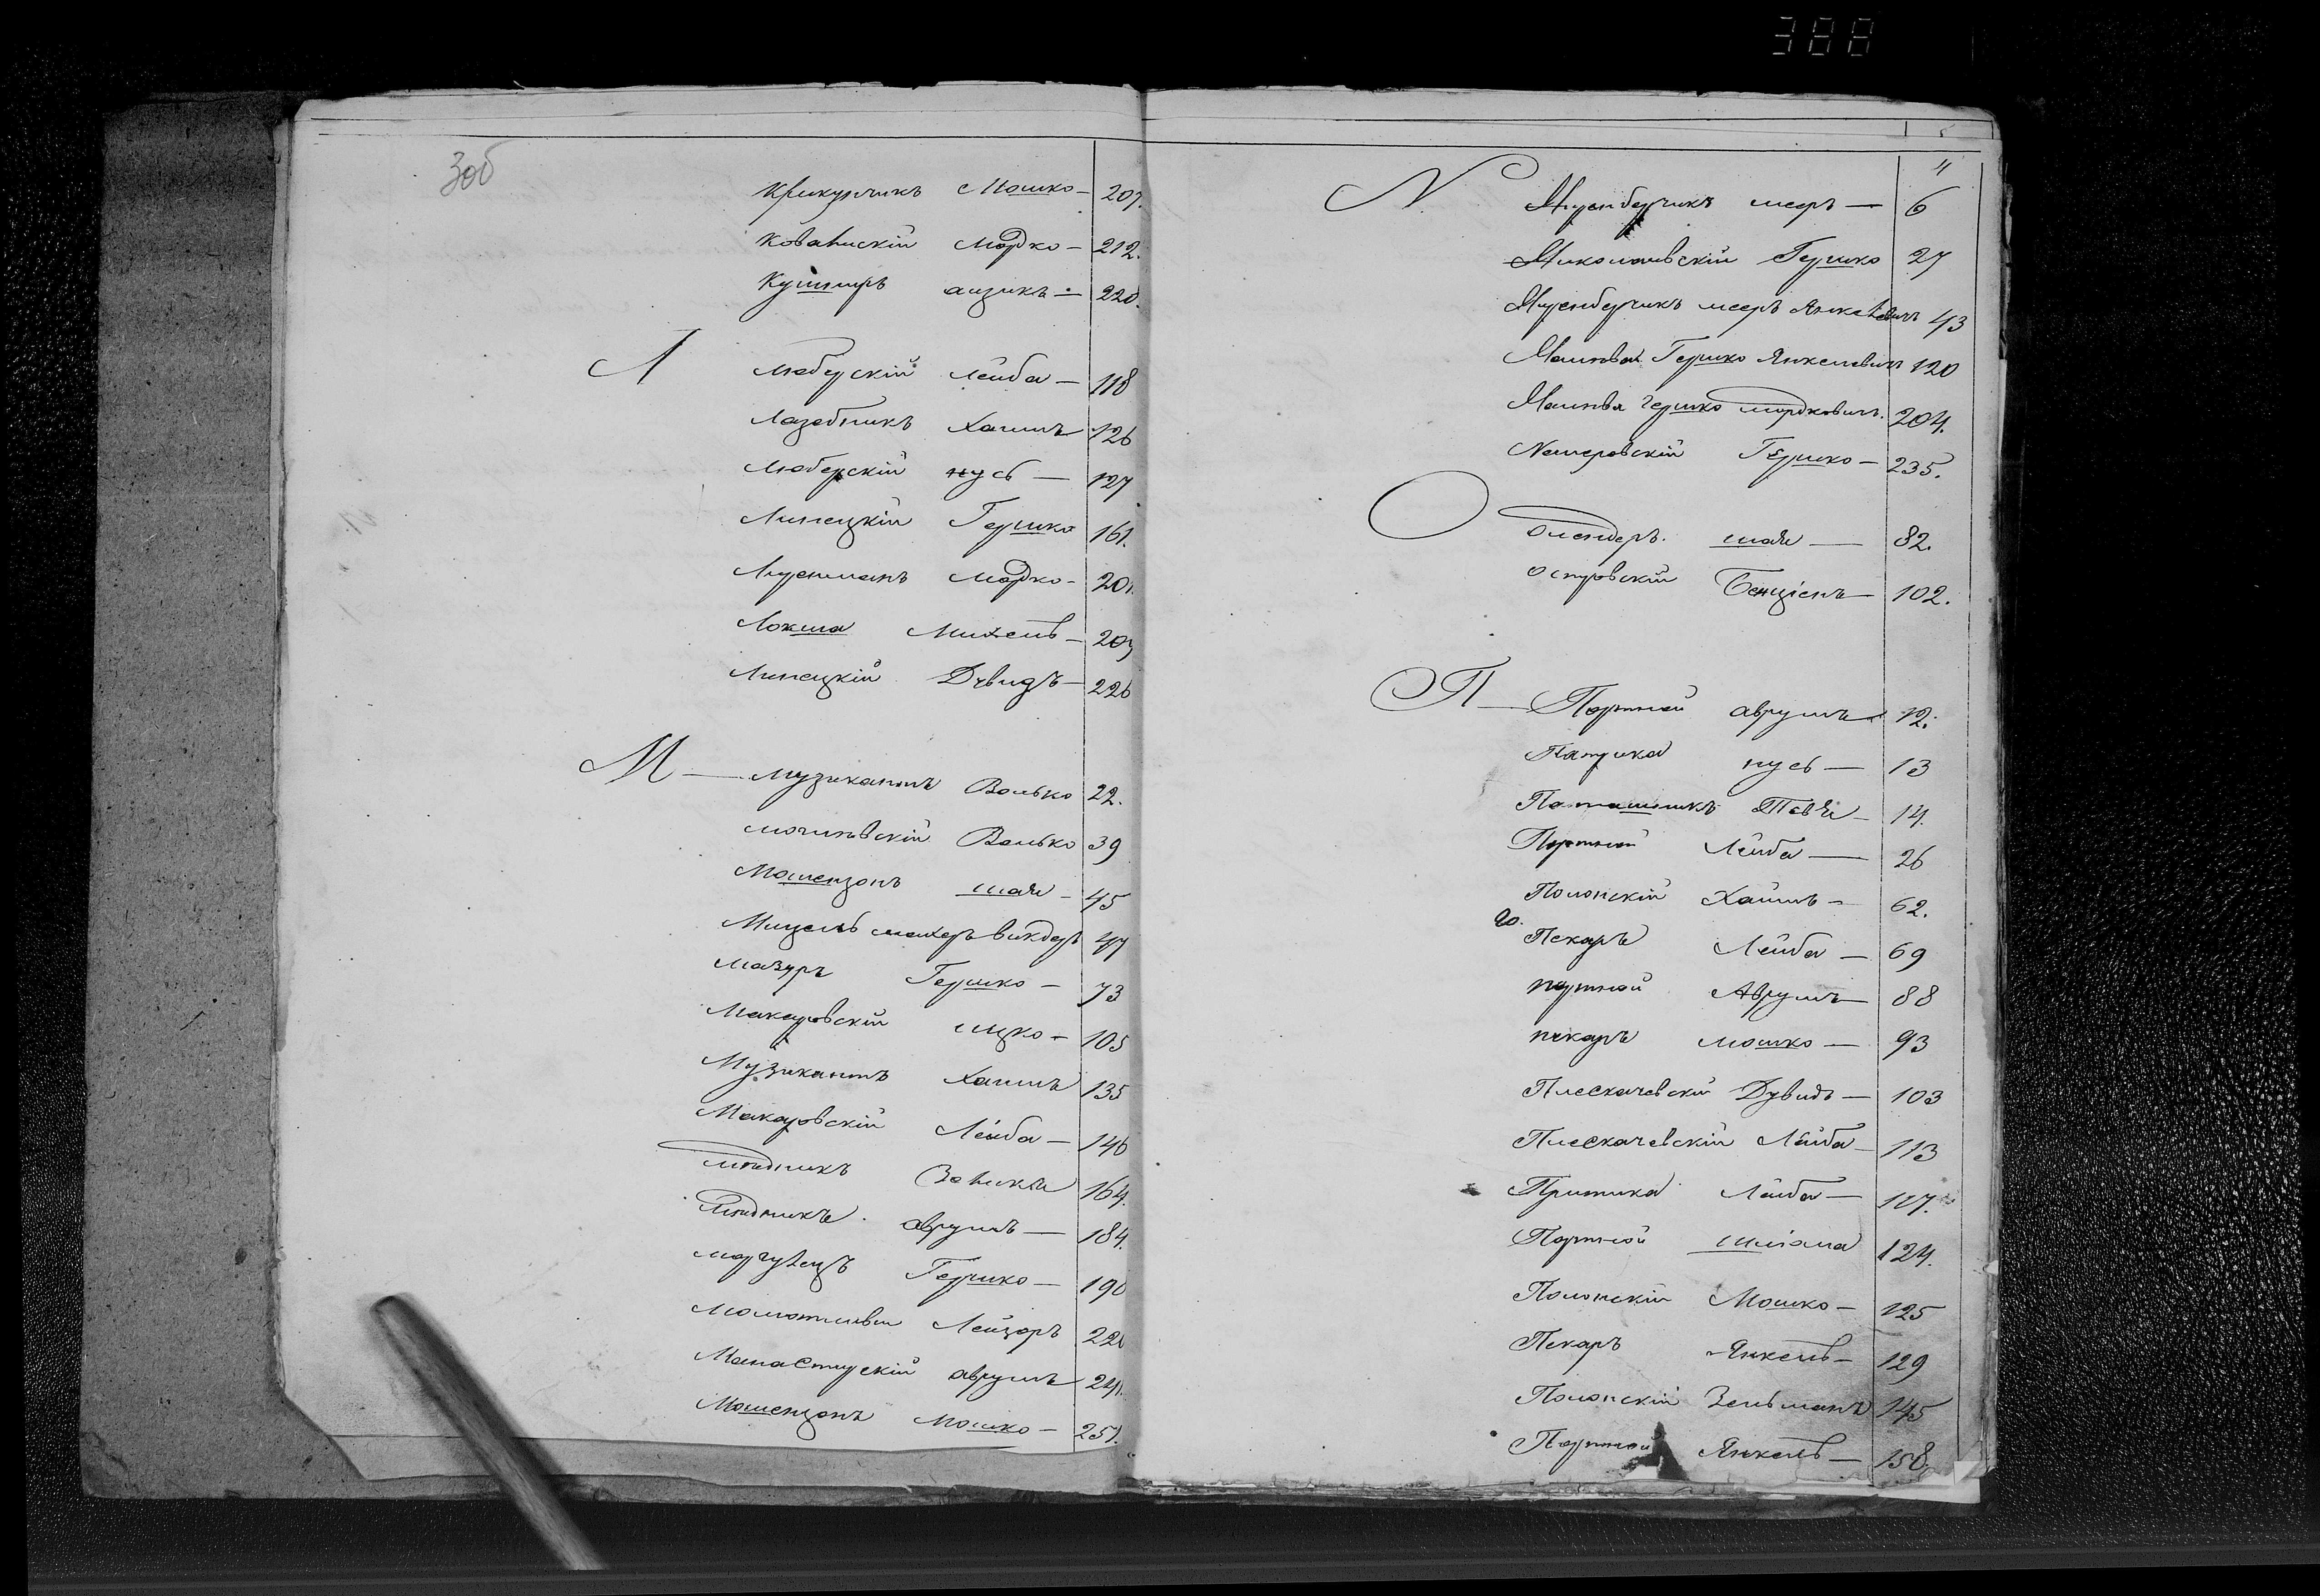 388
306
Крикунчикъ Мошко — 207.
Ковальскій Мордко — 212.
Кушниръ аизикъ — 220.
Л
Люберскій Лейба — 118
Лазебникъ Хаимъ 126
Люберскій нусь — 127
Липецкій Гершко 161.
Мордко — 201.
Локша Михель — 203
Липецкій Дувидъ — 226
М — Музикантъ Волько 22.
Волько 39
Мошензонъ шая — 45
47
Мазуръ Гершко — 73
Макаровскій ицко — 105
Музикантъ Хаимъ 135
Макаровскій Лейба — 146
мѣдникъ 164.
мѣдникъ аврумъ — 184.
Гершко — 190
Лейзоръ 220
Манастирскій аврумъ 241.
Мошензонъ мошко — 251.
N
"
Ниренберчикъ мееръ — 6
Николаевскій Гершко 27
Ниренберчикъ мееръ Янкелевичъ 43
Гершко Янкелевичъ 120
Гершко мордковичъ. 204.
Немеровскій Гершко — 235.
О
Олендеръ. шая — 82.
Островскій Бенціенъ — 102.
П — Портной аврумъ 12.
нусь — 13
Паташникъ Тевя — 14.
Портной Лейба — 26
Полонскій Хаимъ — 62.
Пекаръ Лейба — 69
портной Аврумъ — 88
пекаръ мошко — 93
Плескачевскій Дувидъ — 103
Плескачевскій Лейба — 113
Притика Лейба — 117.
Портной шліома 124.
Полонскій Мошко — 125
Пекаръ Янкель — 129
Полонскій Зельманъ 145
Портной Янкель — 158.